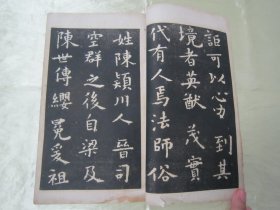 詎可以心力到其
境者英猷茂實
代有人焉法師俗
姓陳潁川人晉司
空群之後自梁及
陳世傳纓冕爰祖